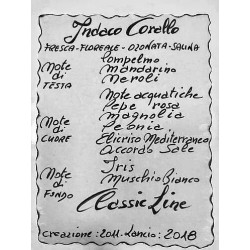 Indaco Corallo
FRESCA-FLOREALE-OZONATA-SALINA
Note di TESTA
Pompelmo
Mandarino
Neroli
Note di CUORE
Note acquatiche
Pepe rosa
Magnolia
Peonia
Elicriso Mediterraneo
Accordo Sale
Note di FONDO
Iris
Muschio Bianco
Classic Line
creazione: 2011. Lancio: 2018